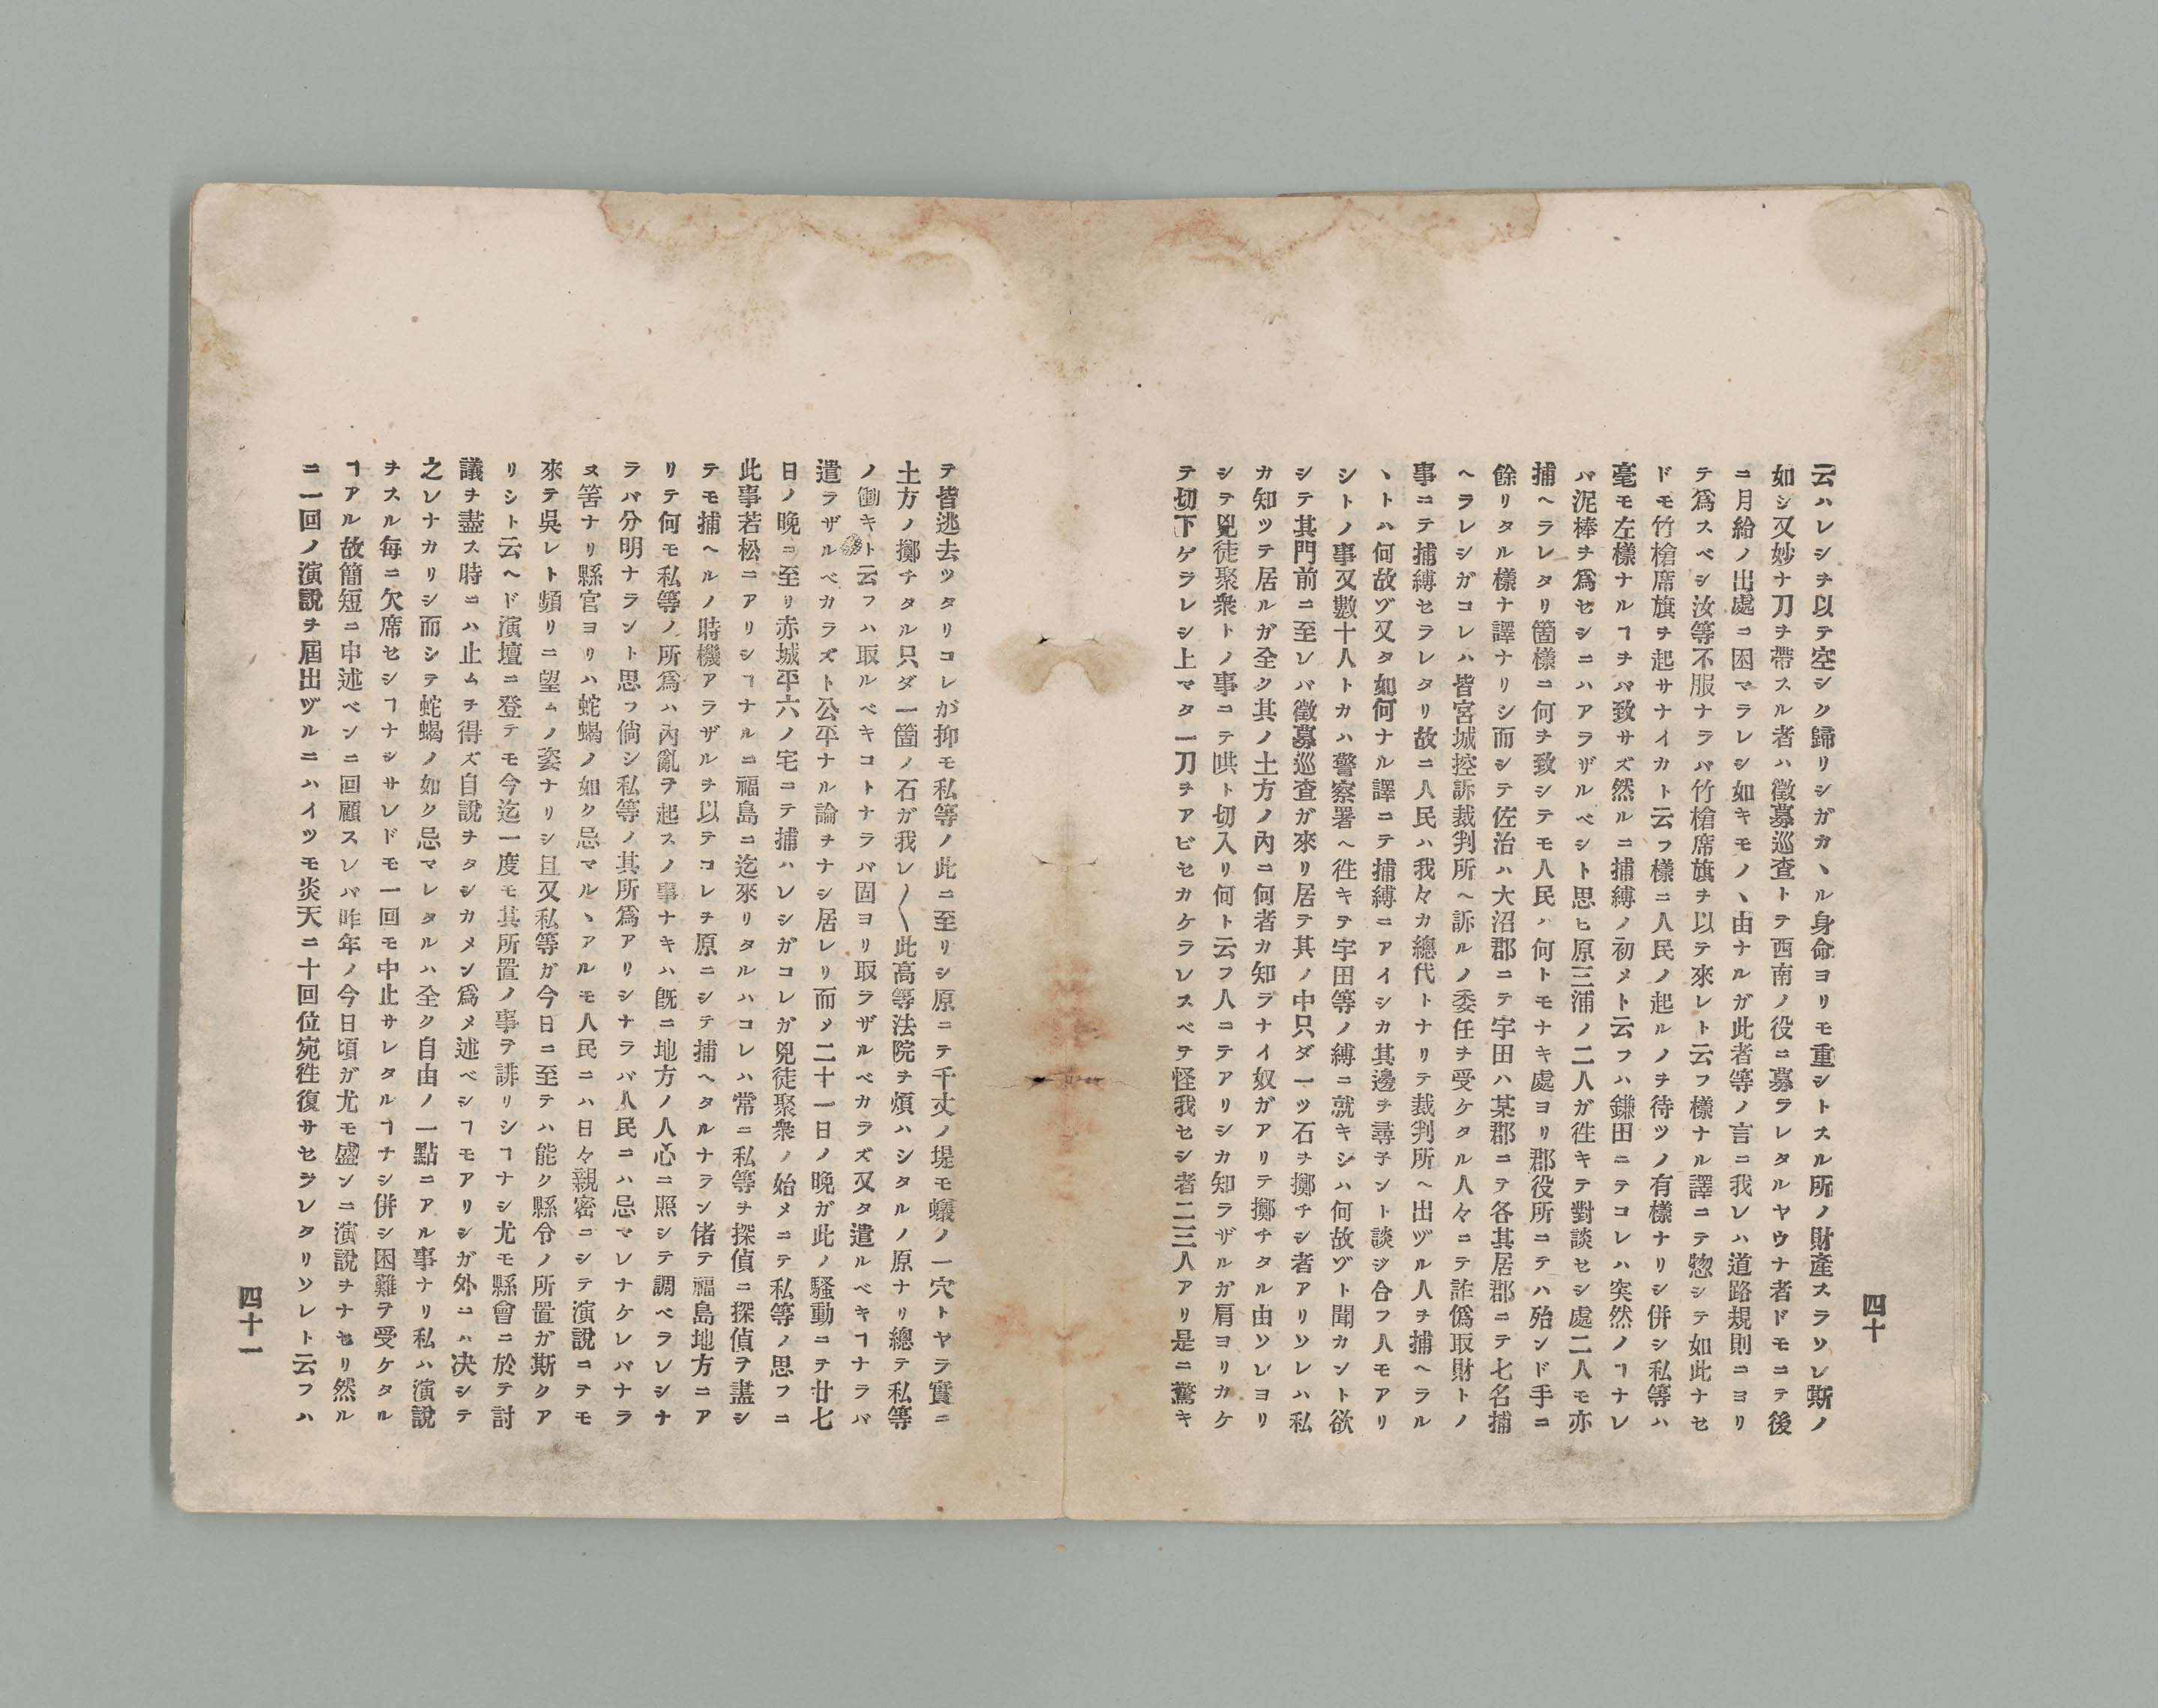 四十
云ハレシヲ以テ空シク歸リシガカヽル身命ヨリモ重シトスル所ノ財產スラソレ斯ノ
如シ又妙ナ刀ヲ帶スル者ハ徵募巡査トテ西南ノ役ニ募ラレタルヤウナ者ドモニテ後
ニ月給ノ出處ニ困マラレシ如キモノヽ由ナルガ此者等ノ言ニ我レハ道路規則ニヨリ
テ爲スベシ汝等不服ナラバ竹槍席旗ヲ以テ來レト云フ樣ナル譯ニテ惣シテ如此ナセ
ドモ竹槍席旗ヲ起サナイカト云フ樣ニ人民ノ起ルノヲ待ツノ有樣ナリシ併シ私等ハ
毫モ左樣ナルヿヲバ致サズ然ルニ捕縛ノ初メト云フハ鎌田ニテコレハ突然ノヿナレ
バ泥棒ヲ爲セシニハアラザルベシト思ヒ原三浦ノ二人ガ徃キテ對談セシ處二人モ亦
捕ヘラレタリ箇樣ニ何ヲ致シテモ人民ハ何トモナキ處ヨリ郡役所ニテハ殆ンド手ニ
餘リタル樣ナ譯ナリシ而シテ佐治ハ大沼郡ニテ宇田ハ某郡ニテ各其居郡ニテ七名捕
ヘラレシガコレハ皆宮城控訴裁判所ヘ訴ルノ委任ヲ受ケタル人々ニテ詐僞取財トノ
事ニテ捕縛セラレタリ故ニ人民ハ我々カ總代トナリテ裁判所ヘ出ヅル人ヲ捕ヘラル
ヽトハ何故ゾ又タ如何ナル譯ニテ捕縛ニアイシカ其邊ヲ尋子ント談ジ合フ人モアリ
シトノ事又數十人トカハ警察署ヘ徃キテ宇田等ノ縛ニ就キシハ何故ゾト聞カント欲
シテ其門前ニ至レバ徵募巡査ガ來リ居テ其ノ中只ダ一ツ石ヲ擲チシ者アリソレハ私
カ知ツテ居ルガ全ク其ノ土方ノ內ニ何者カ知ラナイ奴ガアリテ擲チタル由ソレヨリ
シテ兇徒聚衆トノ事ニテ哄ト切入リ何ト云フ人ニテアリシカ知ラザルガ肩ヨリカケ
テ切下ゲラレシ上マタ一刀ヲアビセカケラレスベテ怪我セシ者二三人アリ是ニ驚キ
テ皆逃去ツタリコレが抑モ私等ノ此ニ至リシ原ニテ千丈ノ堤モ蟻ノ一穴トヤラ實ニ
土方ノ擲チタル只ダ一箇ノ石ガ我レ〳〵此高等法院ヲ煩ハシタルノ原ナリ總テ私等
ノ働キト云フハ取ルベキコトナラバ固ヨリ取ラザルベカラズ又タ遣ルベキヿナラバ
遣ラザルベカラズト公平ナル論ヲナシ居レリ而メ二十一日ノ晚ガ此ノ騷動ニテ廿七
日ノ晚ニ至リ赤城平六ノ宅ニテ捕ハレシガコレガ兇徒聚衆ノ始メニテ私等ノ思フニ
此事若松ニアリシヿナルニ福島ニ迄來リタルハコレハ常ニ私等ヲ探偵ニ探偵ヲ盡シ
テモ捕ヘルノ時機アラザルヲ以テコレヲ原ニシテ捕ヘタルナラン偖テ福島地方ニア
リテ何モ私等ノ所爲ハ內亂ヲ起スノ事ナキハ旣ニ地方ノ人心ニ照シテ調ベラレシナ
ラバ分明ナラント思フ倘シ私等ノ其所爲アリシナラバ人民ニハ忌マレナケレバナラ
ヌ筈ナリ縣官ヨリハ蛇蝎ノ如ク忌マルヽアルモ人民ニハ日々親密ニシテ演說ニテモ
來テ吳レト頻リニ望ムノ姿ナリシ且又私等ガ今日ニ至テハ能ク縣令ノ所置ガ斯クア
リシト云ヘド演壇ニ登テモ今迄一度モ其所置ノ事ヲ誹リシヿナシ尤モ縣會ニ於テ討
議ヲ盡ス時ニハ止ムヲ得ズ自說ヲタシカメン爲メ述ベシヿモアリシガ外ニハ决シテ
之レナカリシ而シテ蛇蝎ノ如ク忌マレタルハ全ク自由ノ一點ニアル事ナリ私ハ演說
ヲスル每ニ欠席セシヿナシサレドモ一回モ中止サレタルヿナシ併シ困難ヲ受ケタル
ヿアル故簡短ニ申述ベンニ回顧スレバ昨年ノ今日頃ガ尤モ盛ンニ演說ヲナセリ然ル
ニ一回ノ演說ヲ屆出ヅルニハイツモ炎天ニ十回位宛徃復サセラレタリソレト云フハ
四十一